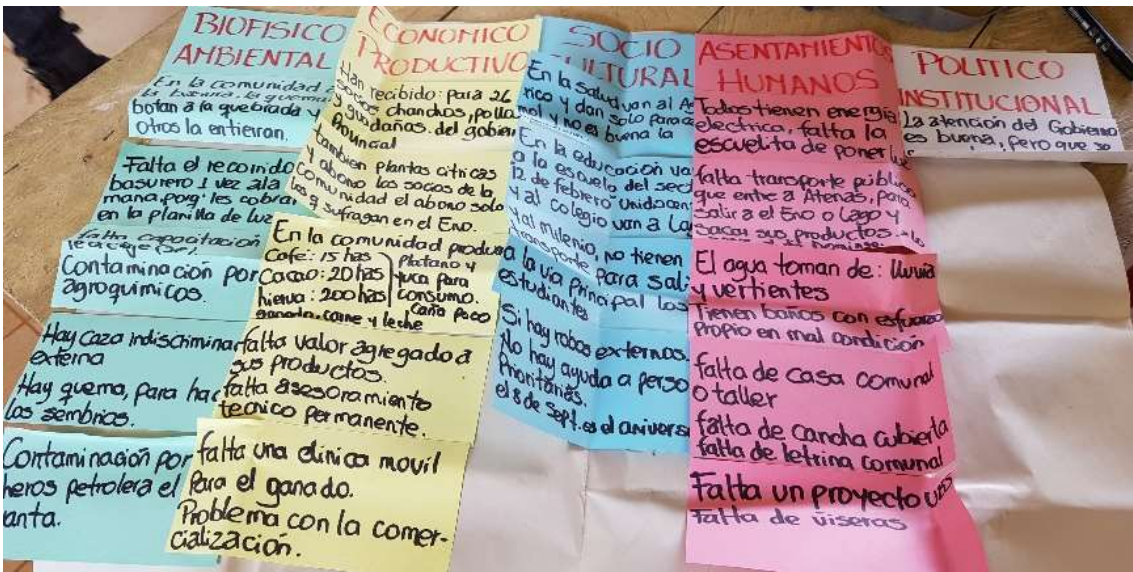 BIOFISICO
AMBIENTAL
En la comunidad
la basura, la quema
botan a la quebrada y
Otros la entierran.
Falta el recorrido
basurero 1 vez a la
mana, porq' les cobran
en la planilla de luz
falta capacitación
Contaminación por
agroquímicos.
Hay caza indiscrimina
externa
Hay quema, para hac
los sembrios.
Contaminación por
heros petrolera el
anta.
ECONOMICO
PRODUCTIVO
Han recibido: para 26
socios chanchos, pollo
y guadañas. del gobier
Provincial
también plantas citricas
y abono los socios de la
comunidad el abono solo
q sufragan en el Eno.
En la comunidad produ
Café: 15 has
Cacao: 20 has
hierva: 200 has
ganado, carne y leche
Platano y
yuca para
consumo.
caña poco
falta valor agregado a
sus productos.
falta asesoramiento
técnico permanente.
falta una clinica movil
Para el ganado.
Problema con la comer-
cialización.
SOCIO
CULTURAL
En la salud van al
rico y dan solo para
mol y no es buena la
En la educación va
a la escuela del sec
12 de febrero Unidocen
y al colegio van a La
y al milenio, no tienen
transporte para sali
a la via principal los
estudiantes
Si hay robos externos.
No hay ayuda a perso
Prioritarias.
el 8 de Sept. es el anivers
ASENTAMIENTOS
HUMANOS
Todos tienen energia
electrica, falta la
escuelita de poner
falta transporte público
que entre a Atenas, para
salir a el Eno o Lago y
sacar sus productos.
El agua toman de: lluvia
y vertientes
Tienen baños con esfuerzo
Propio en mal condición
falta de casa comunal
o taller
falta de cancha cubierta
falta de letrina comunal
Falta un proyecto
Falta de viseras
POLITICO
INSTITUCIONAL
La atención del Gobierno
es buena, pero que se